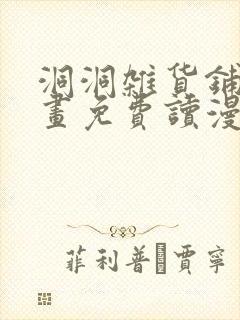 洞洞雜貨鋪
畫免費讀漫
菲利普·賈寧